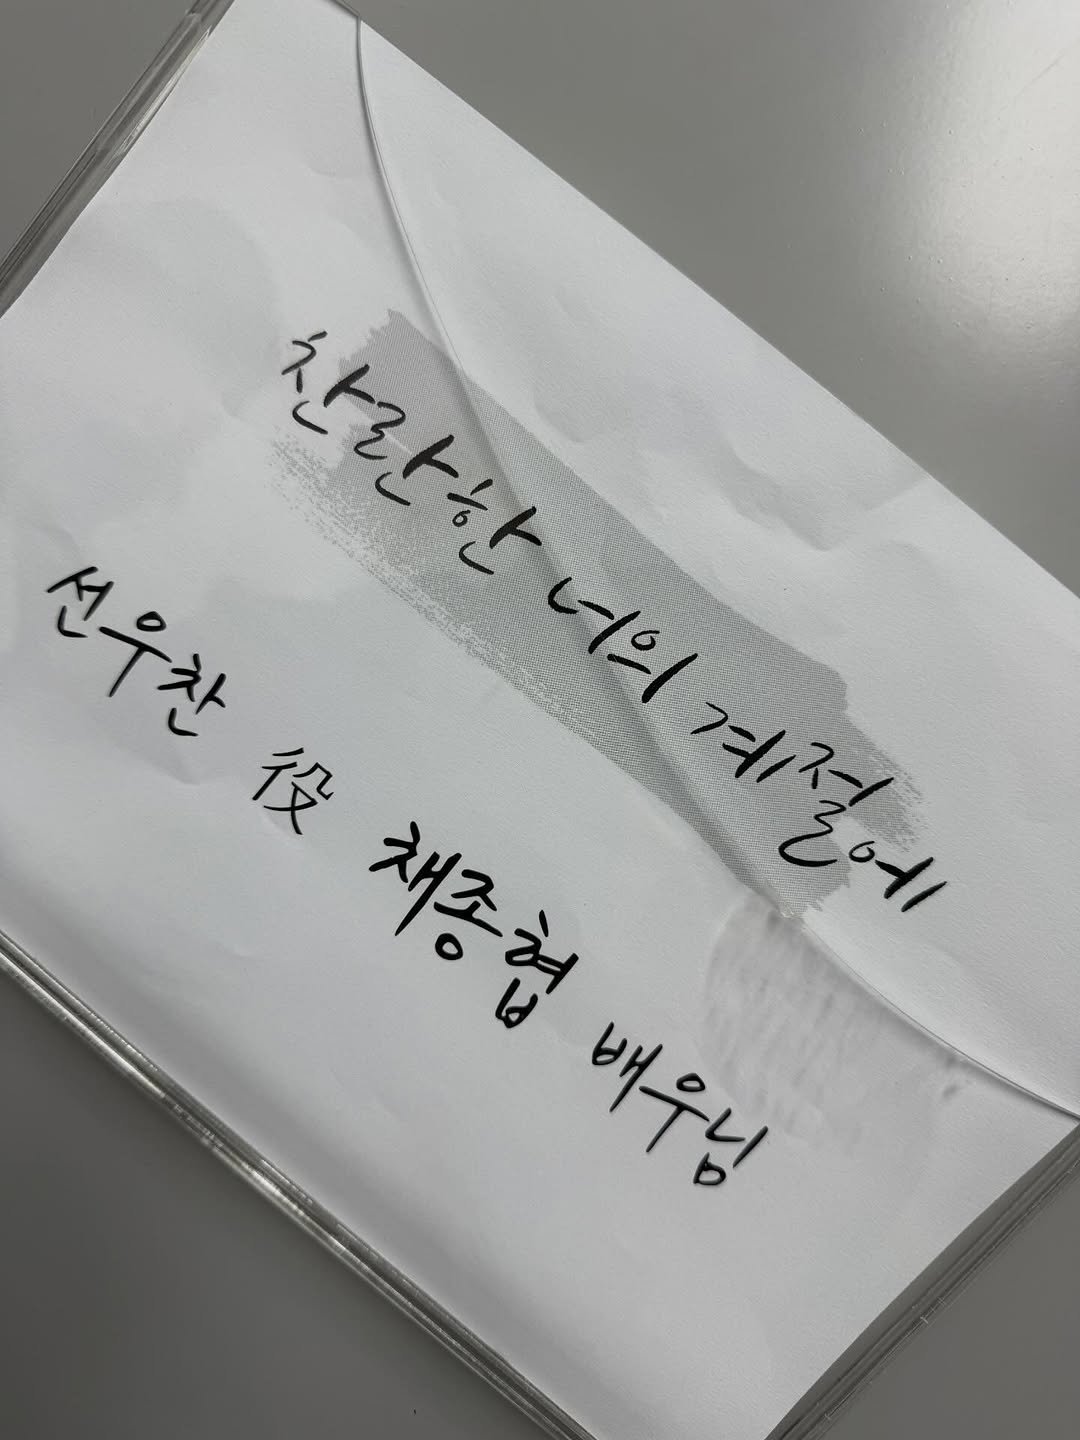 찬란한 너의 계절에
선우찬 役 채종협 배우님